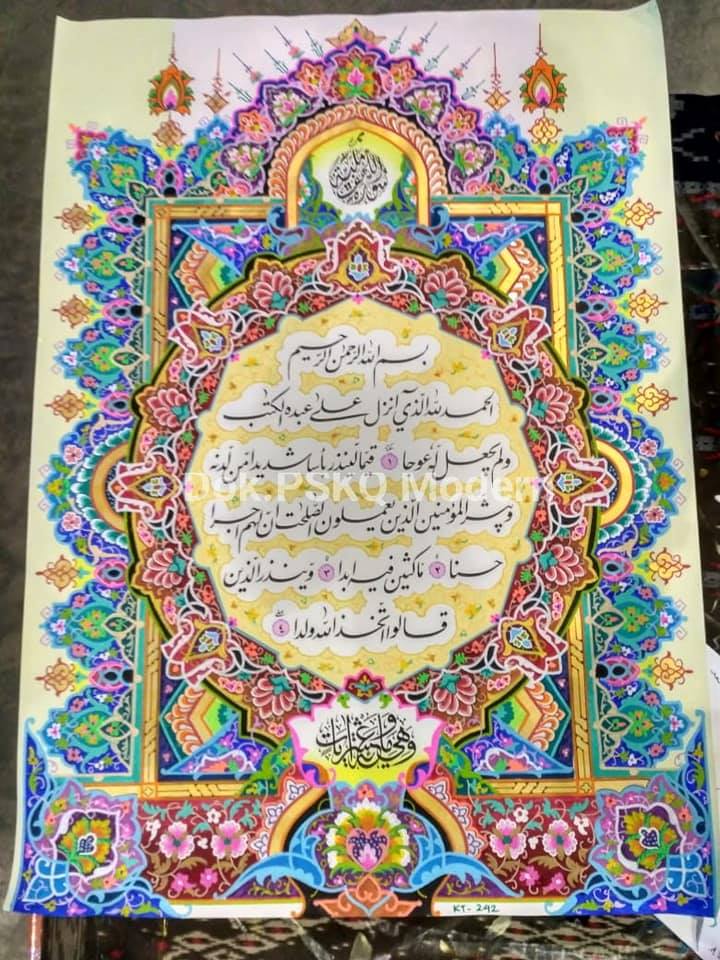 بسم الله الرحمن الرحيم
الحمد لله الذي انزل على عبده الكتب
ولم يجعل له عوجا ١ قيما لينذر بأسا شديدا من لدنه
Dok.PSKQ Modern
ويبشر المؤمنين الذين يعملون الصلحت ان لهم اجرا
حسنا ٢ ماكثين فيه ابدا ٣ وينذر الذين
قالوا اتخذ الله ولدا ٤
وهي مائة وعشر آيات
KT-242